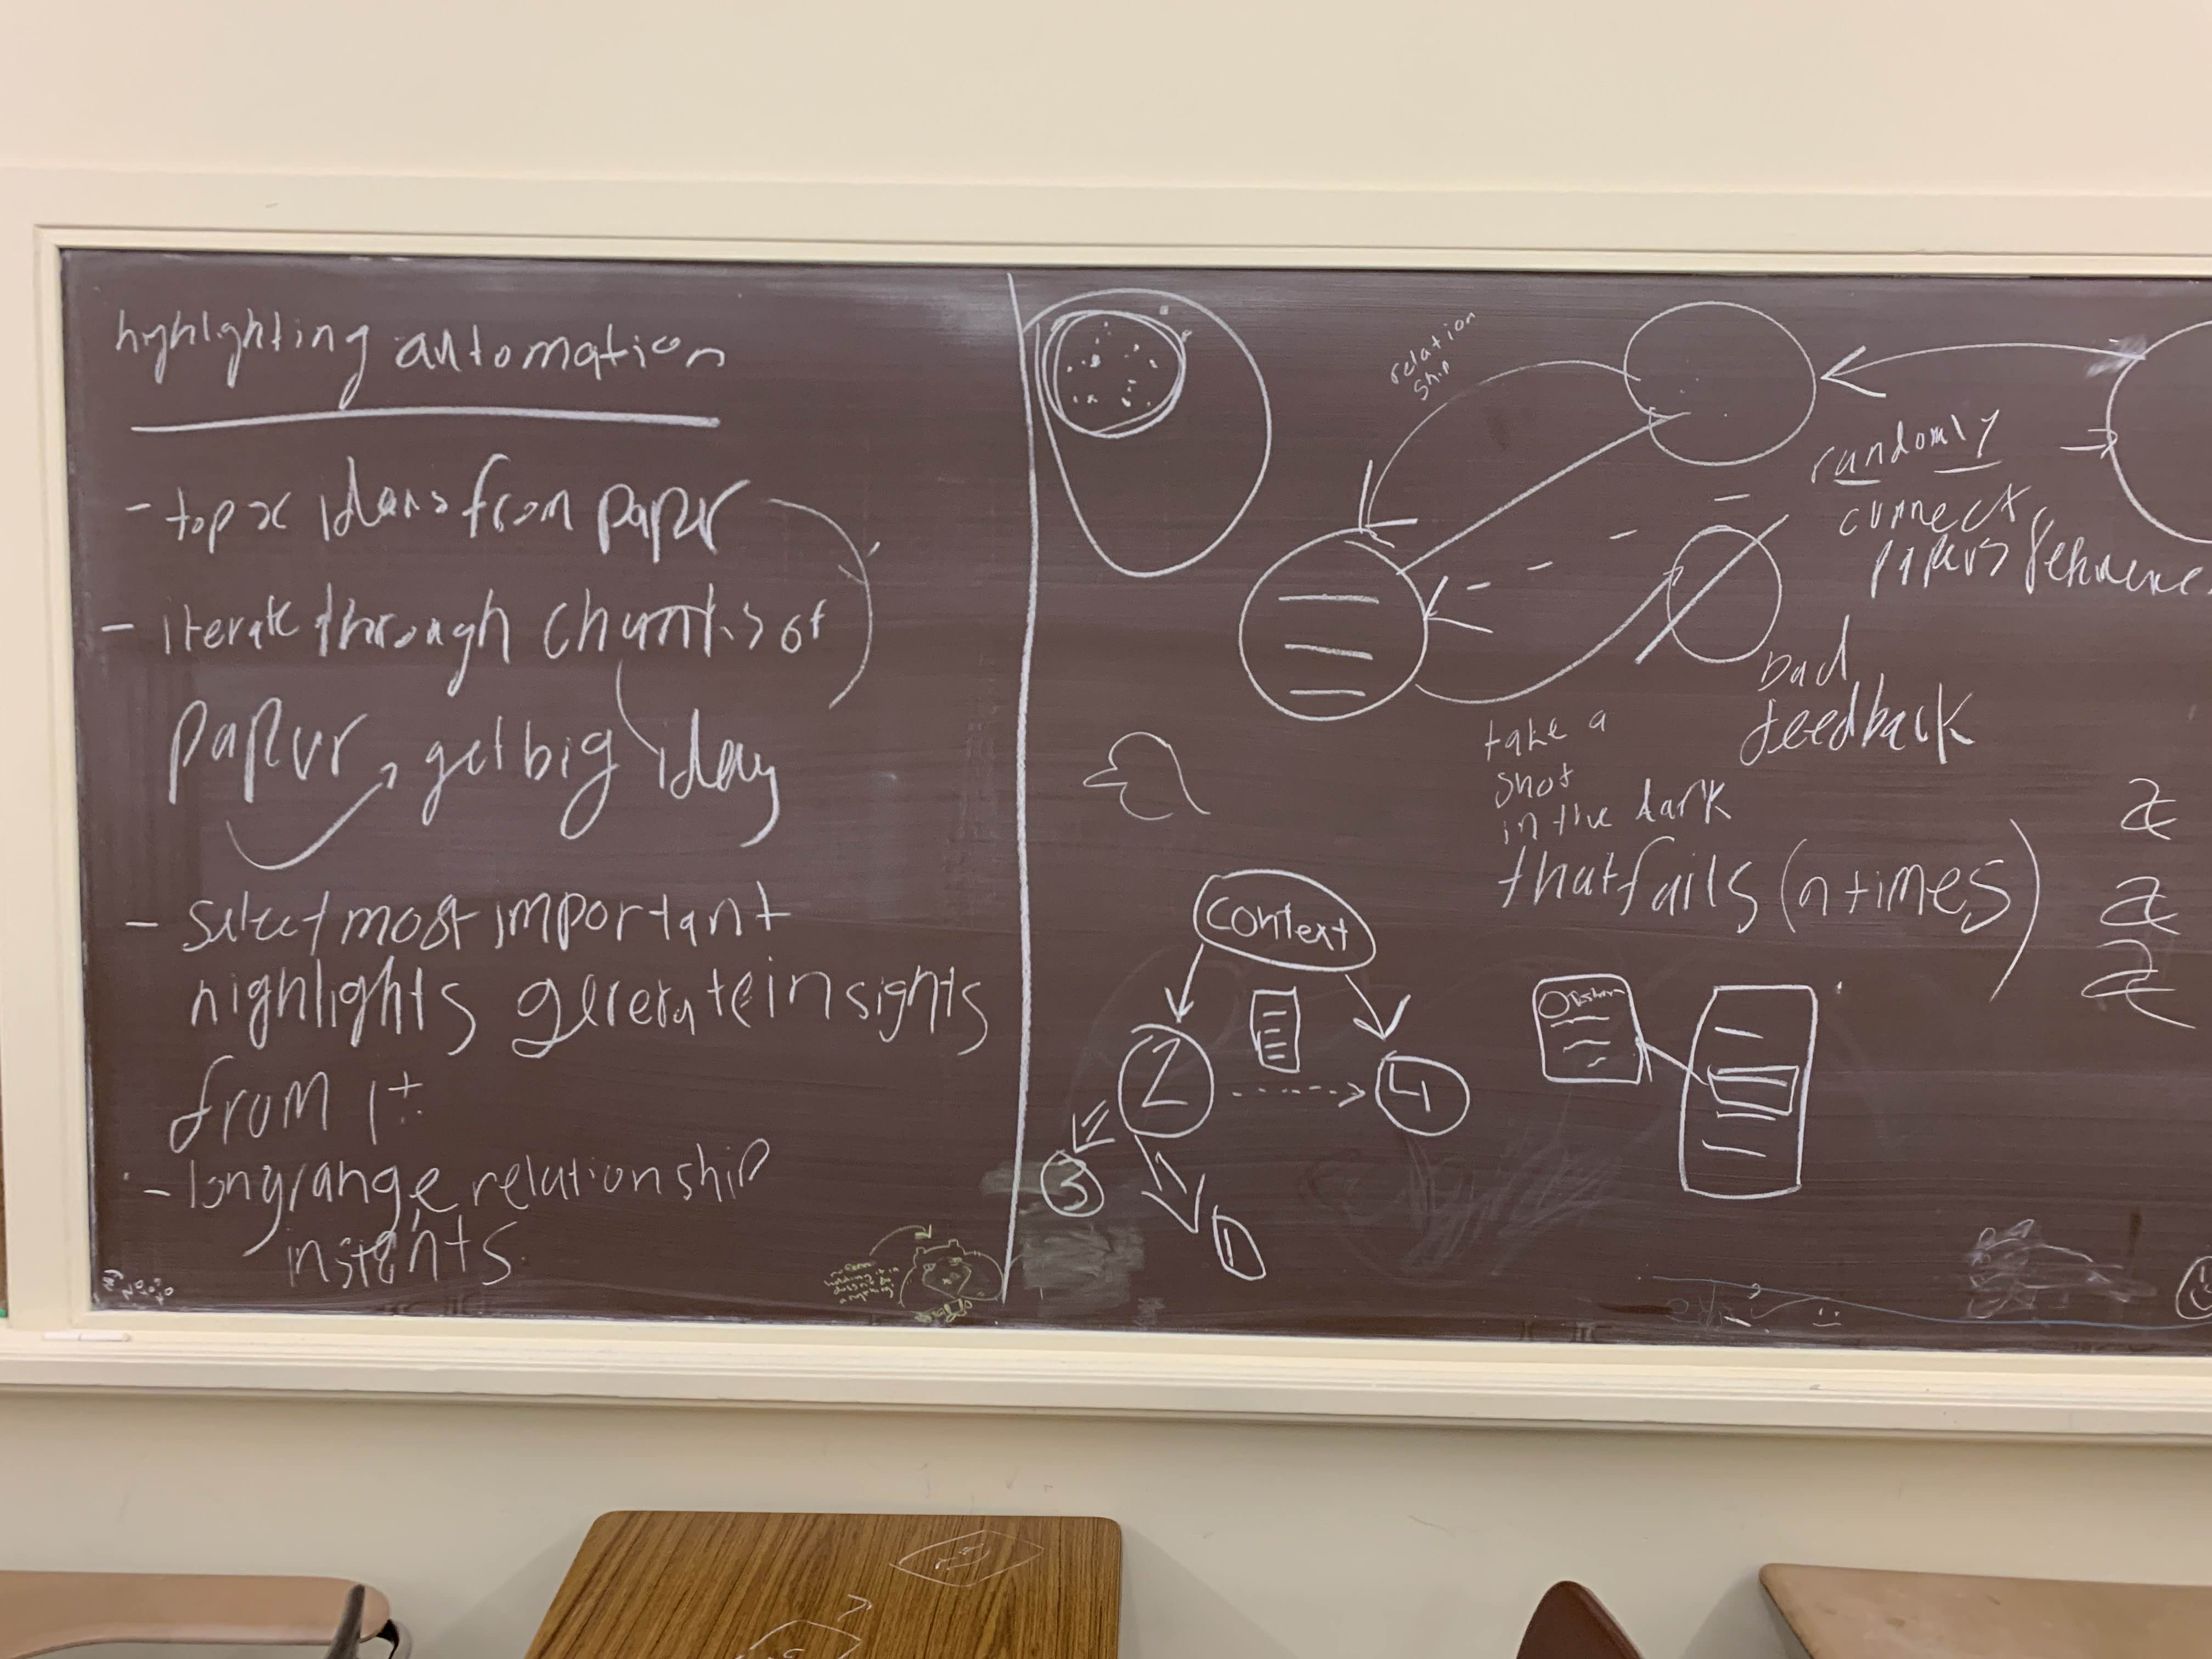 highlighting automation
- top x ideas from paper
- iterate through chunks of
paper, get big ideas
- select most important
highlights generate insights
from it
- long range relationship
insights
relation
ship
randomly
connect
papers
bad
feedback
take a
shot
in the dark
that fails (n times)
context
2
4
3
1